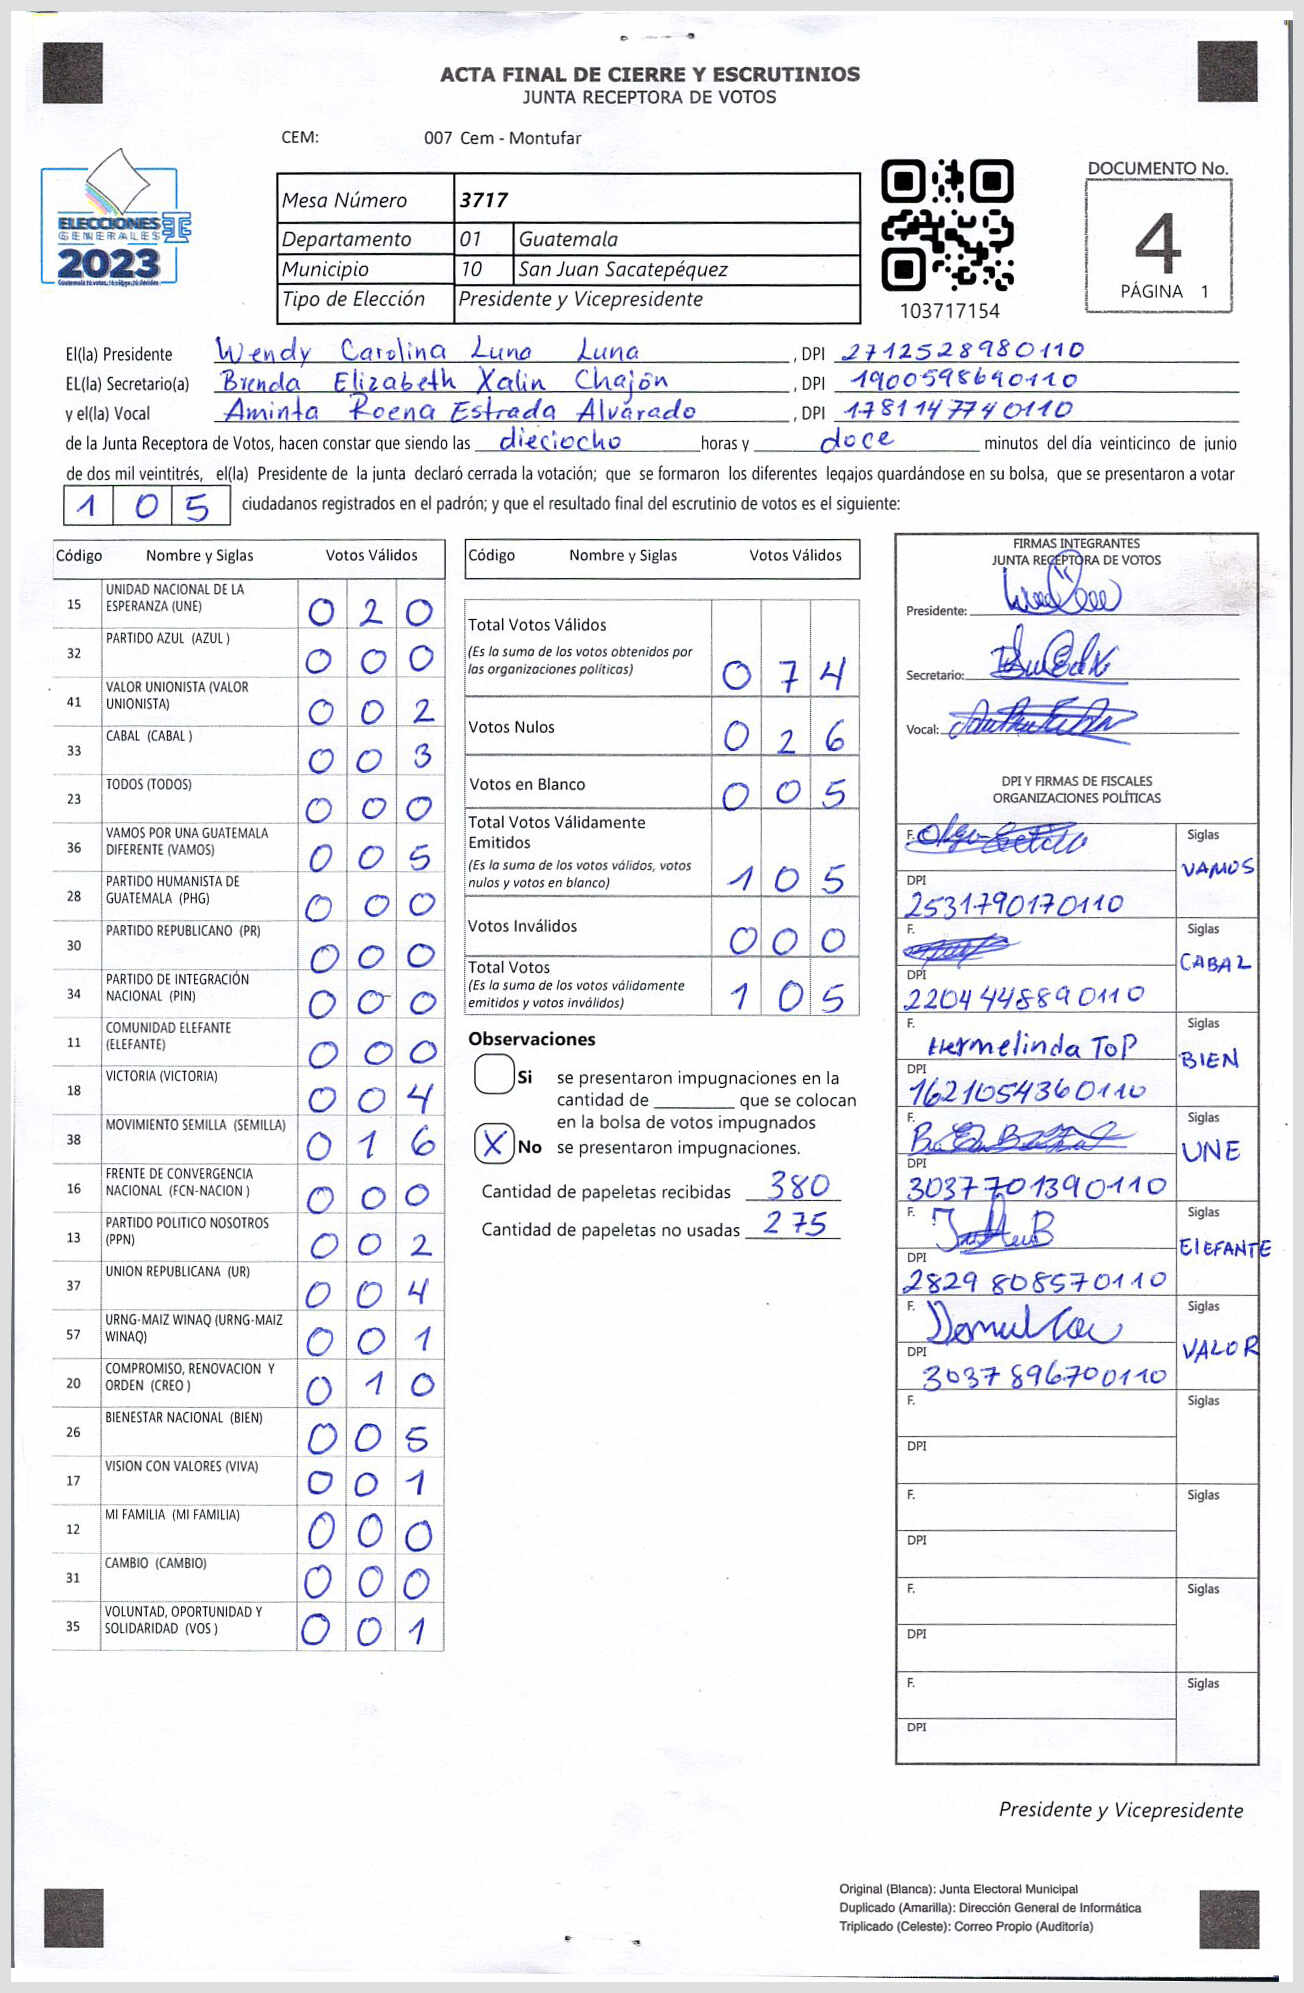 ACTA FINAL DE CIERRE Y ESCRUTINIOS
JUNTA RECEPTORA DE VOTOS
CEM: 007 Cem - Montufar
ELECCIONES
GENERALES
2023
Mesa Número 3717
Departamento 01 Guatemala
Municipio 10 San Juan Sacatepéquez
Tipo de Elección Presidente y Vicepresidente
103717154
DOCUMENTO No.
4
PÁGINA 1
El(la) Presidente Wendy Carolina Luna Luna , DPI 2712528980110
EL(la) Secretario(a) Brenda Elizabeth Xalin Chajón , DPI 1900598690110
y el(la) Vocal Aminta Roena Estrada Alvarado , DPI 1781147740110
de la Junta Receptora de Votos, hacen constar que siendo las dieciocho horas y doce minutos del día veinticinco de junio
de dos mil veintitrés, el(la) Presidente de la junta declaró cerrada la votación; que se formaron los diferentes legajos quardándose en su bolsa, que se presentaron a votar
1 0 5 ciudadanos registrados en el padrón; y que el resultado final del escrutinio de votos es el siguiente:
Código Nombre y Siglas Votos Válidos
15 UNIDAD NACIONAL DE LA ESPERANZA (UNE) 0 2 0
32 PARTIDO AZUL (AZUL ) 0 0 0
41 VALOR UNIONISTA (VALOR UNIONISTA) 0 0 2
33 CABAL (CABAL ) 0 0 3
23 TODOS (TODOS) 0 0 0
36 VAMOS POR UNA GUATEMALA DIFERENTE (VAMOS) 0 0 5
28 PARTIDO HUMANISTA DE GUATEMALA (PHG) 0 0 0
30 PARTIDO REPUBLICANO (PR) 0 0 0
34 PARTIDO DE INTEGRACIÓN NACIONAL (PIN) 0 0 0
11 COMUNIDAD ELEFANTE (ELEFANTE) 0 0 0
18 VICTORIA (VICTORIA) 0 0 4
38 MOVIMIENTO SEMILLA (SEMILLA) 0 1 6
16 FRENTE DE CONVERGENCIA NACIONAL (FCN-NACION ) 0 0 0
13 PARTIDO POLITICO NOSOTROS (PPN) 0 0 2
37 UNION REPUBLICANA (UR) 0 0 4
57 URNG-MAIZ WINAQ (URNG-MAIZ WINAQ) 0 0 1
20 COMPROMISO, RENOVACION Y ORDEN (CREO ) 0 1 0
26 BIENESTAR NACIONAL (BIEN) 0 0 5
17 VISION CON VALORES (VIVA) 0 0 1
12 MI FAMILIA (MI FAMILIA) 0 0 0
31 CAMBIO (CAMBIO) 0 0 0
35 VOLUNTAD, OPORTUNIDAD Y SOLIDARIDAD (VOS ) 0 0 1
Código Nombre y Siglas Votos Válidos
Total Votos Válidos
(Es la suma de los votos obtenidos por
las organizaciones políticas) 0 7 4
Votos Nulos 0 2 6
Votos en Blanco 0 0 5
Total Votos Válidamente
Emitidos
(Es la suma de los votos válidos, votos
nulos y votos en blanco) 1 0 5
Votos Inválidos 0 0 0
Total Votos
(Es la suma de los votos válidamente
emitidos y votos inválidos) 1 0 5
Observaciones
Si se presentaron impugnaciones en la
cantidad de ________ que se colocan
en la bolsa de votos impugnados
X No se presentaron impugnaciones.
Cantidad de papeletas recibidas 380
Cantidad de papeletas no usadas 275
FIRMAS INTEGRANTES
JUNTA RECEPTORA DE VOTOS
Presidente:
Secretario:
Vocal:
DPI Y FIRMAS DE FISCALES
ORGANIZACIONES POLÍTICAS
F. Siglas VAMOS
DPI 2531790170110
F. Siglas CABAL
DPI 2204448890110
F. Hermelinda TOP Siglas BIEN
DPI 1621054360110
F. Siglas UNE
DPI 3037701390110
F. Siglas ElEFANTE
DPI 2829 808570110
F. Siglas VALOR
DPI 3037896700110
F. Siglas
DPI
F. Siglas
DPI
F. Siglas
DPI
F. Siglas
DPI
Presidente y Vicepresidente
Original (Blanca): Junta Electoral Municipal
Duplicado (Amarilla): Dirección General de Informática
Triplicado (Celeste): Correo Propio (Auditoría)